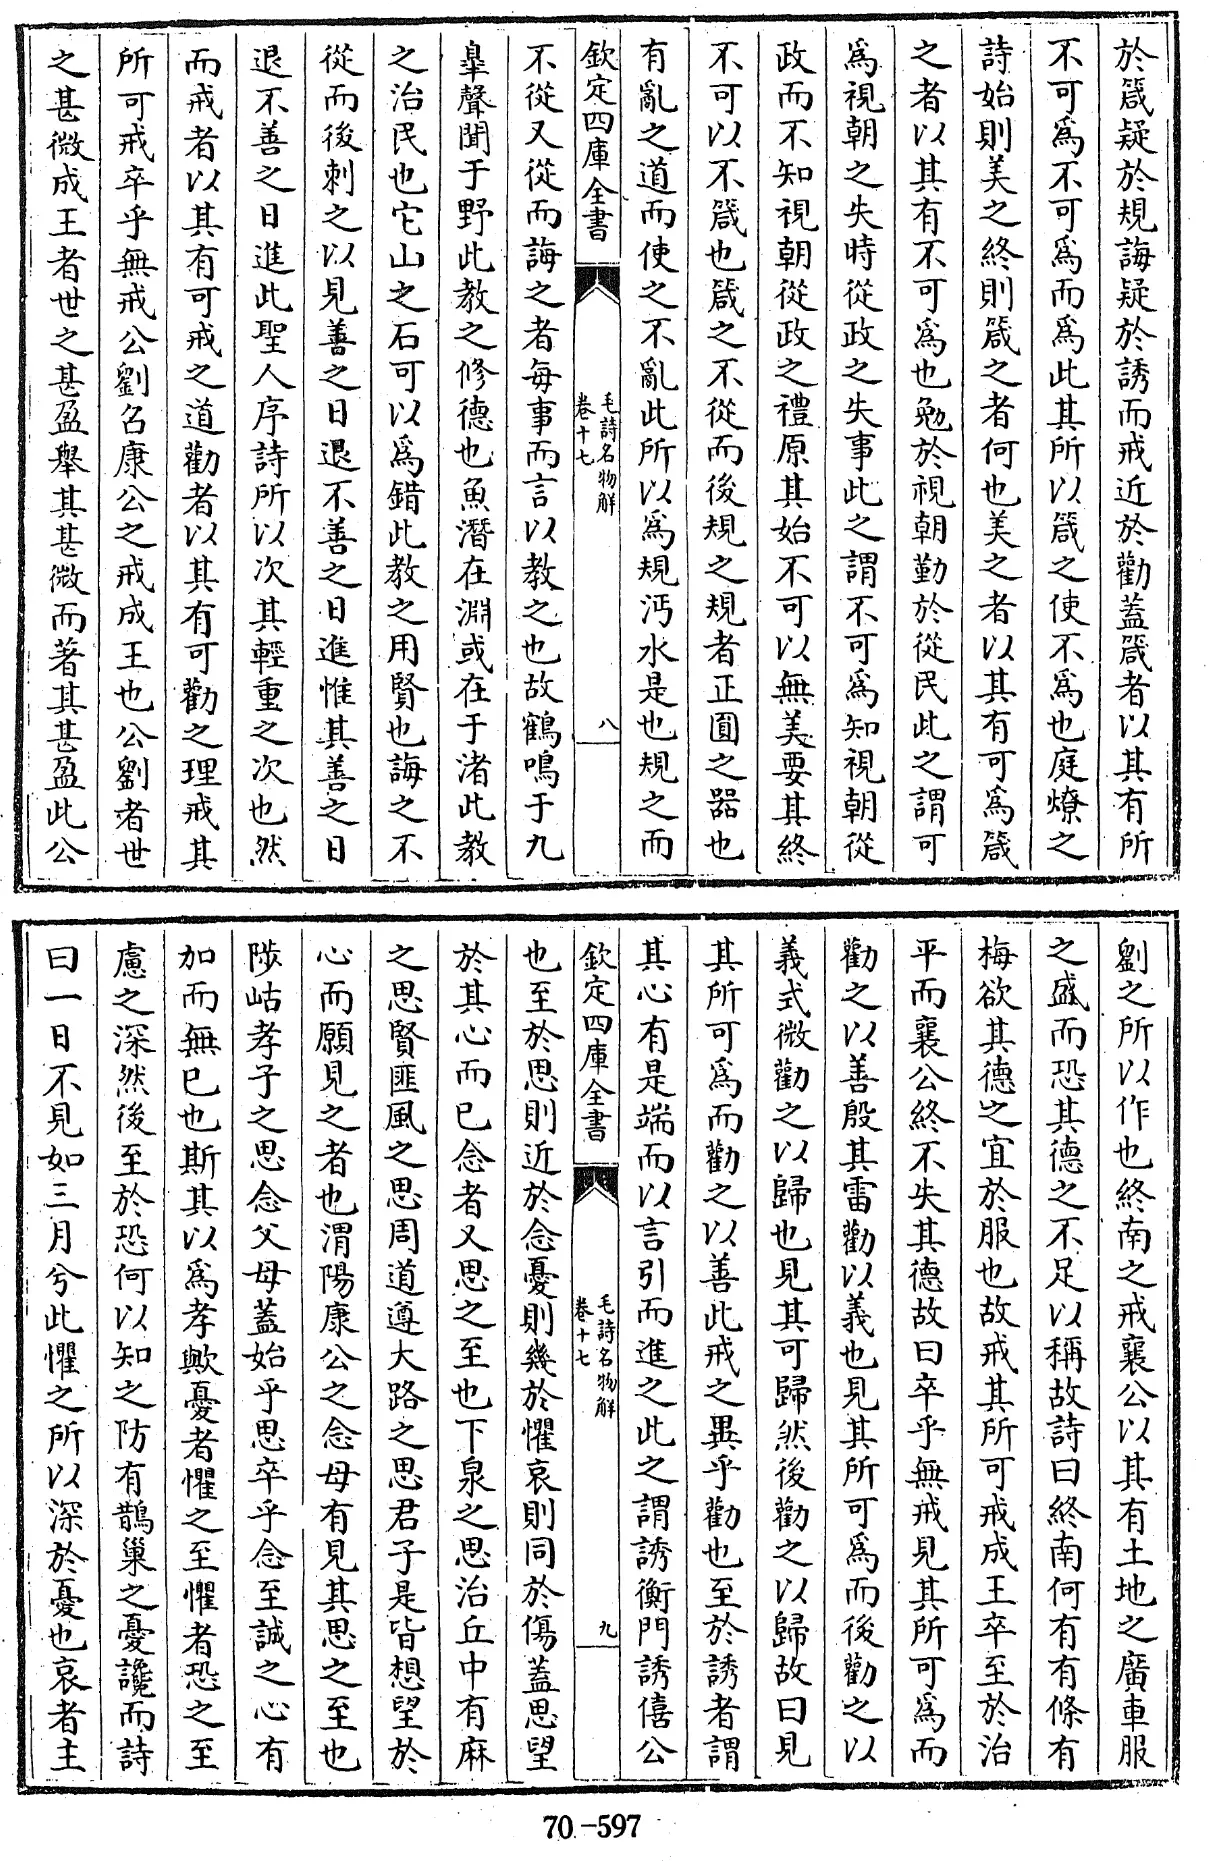 於箴疑於規誨疑於誘而戒近於勸蓋箴者以其有所
不可爲不可爲而爲此其所以箴之使不爲也庭燎之
詩始則美之終則箴之者何也美之者以其有可爲箴
之者以其有不可爲也勉於視朝勤於從民此之謂可
爲視朝之失時從政之失事此之謂不可爲知視朝從
政而不知視朝從政之禮原其始不可以無美要其終
不可以不箴也箴之不從而後規之規者正圓之器也
有亂之道而使之不亂此所以爲規沔水是也規之而
欽定四庫全書
毛詩名物解
卷十七
八
不從又從而誨之者每事而言以教之也故鶴鳴于九
臯聲聞于野此教之修德也魚潛在淵或在于渚此教
之治民也它山之石可以爲錯此教之用賢也誨之不
從而後刺之以見善之日退不善之日進惟其善之日
退不善之日進此聖人序詩所以次其輕重之次也然
而戒者以其有可戒之道勸者以其有可勸之理戒其
所可戒卒乎無戒公劉召康公之戒成王也公劉者世
之甚微成王者世之甚盈舉其甚微而著其甚盈此公
劉之所以作也終南之戒襄公以其有土地之廣車服
之盛而恐其德之不足以稱故詩曰終南何有有條有
梅欲其德之宜於服也故戒其所可戒成王卒至於治
平而襄公終不失其德故曰卒乎無戒見其所可爲而
勸之以善殷其雷勸以義也見其所可爲而後勸之以
義式微勸之以歸也見其可歸然後勸之以歸故曰見
其所可爲而勸之以善此戒之異乎勸也至於誘者謂
其心有是端而以言引而進之此之謂誘衡門誘僖公
欽定四庫全書
毛詩名物解
卷十七
九
也至於思則近於念憂則幾於懼哀則同於傷蓋思望
於其心而已念者又思之至也下泉之思治丘中有麻
之思賢匪風之思周道遵大路之思君子是皆想望於
心而願見之者也渭陽康公之念母有見其思之至也
陟岵孝子之思念父母蓋始乎思卒乎念至誠之心有
加而無已也斯其以爲孝歟憂者懼之至懼者恐之至
慮之深然後至於恐何以知之防有鵲巢之憂讒而詩
曰一日不見如三月兮此懼之所以深於憂也哀者主
70-597